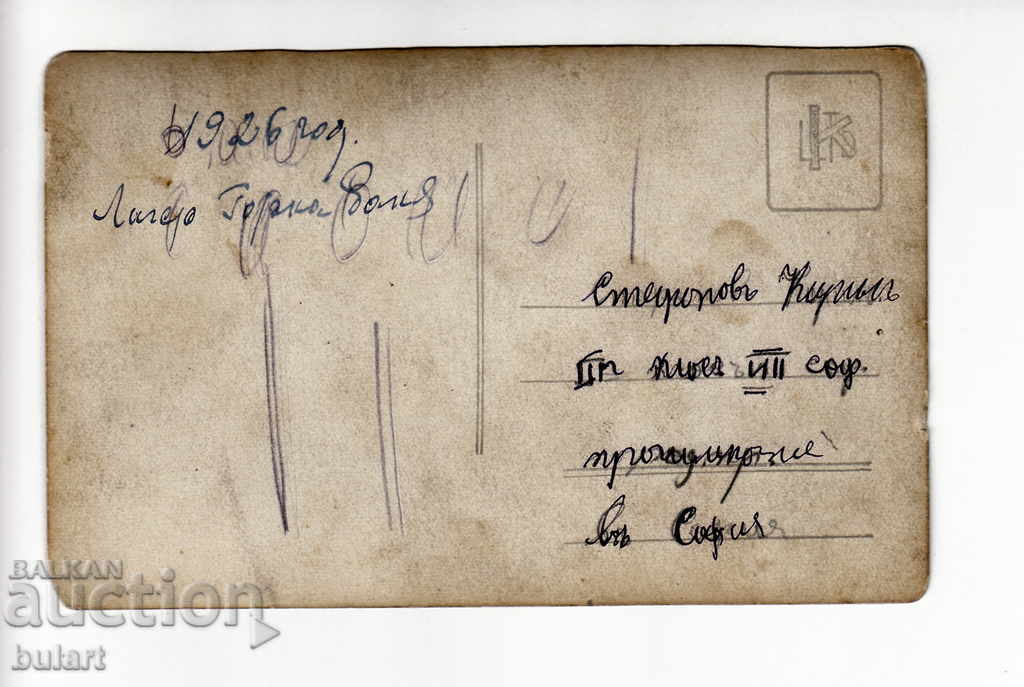 1926 год.
Лагер Горна Баня
Стефановъ Кирил
II п клас III соф.
прогимназия
въ София
BALKAN
auction
bulart